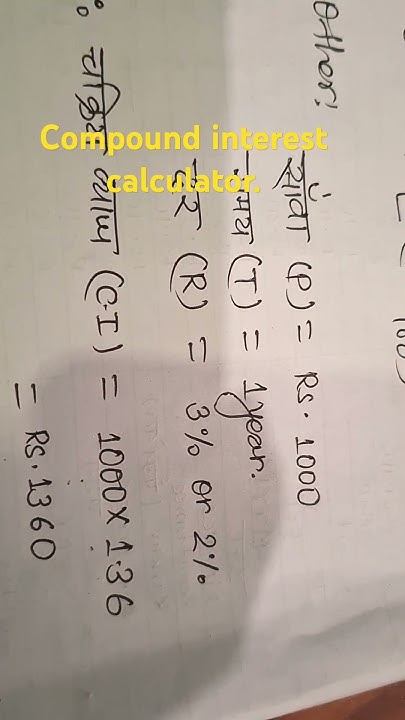 Other:
100)
साँवा (P) = Rs. 1000
समय (T) = 1 year.
दर (R) = 3% or 2%
चक्रिय ब्याज (C.I) = 1000 x 1.36
= Rs. 1360
Compound interest
calculator.